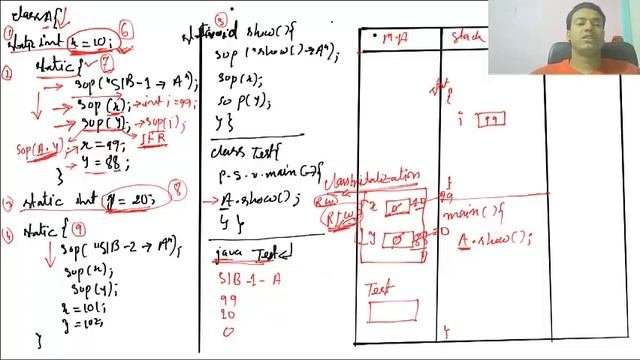 class A{
① static int x = 10; ⑥
② static { ⑦
sop("SIB-1 → A");
sop(x); → int i = 99;
sop(y); → sop(i);
sop(A.y) IFR
x = 99;
y = 88;
}
③ static int y = 20; ⑧
④ static { ⑨
sop("SIB-2 → A");
sop(x);
sop(y);
x = 101;
y = 102;
}
⑤
static void show(){
sop("show() → A");
sop(x);
sop(y);
}}
class Test{
p.s.v.main(-){
A.show();
}}
java Test
SIB-1-A
99
10
0
M-A
Stack
i 99
Class initialization
RIW
R/W
x 0 10 99
y 0 88 0
main(){
A.show();
}
Test